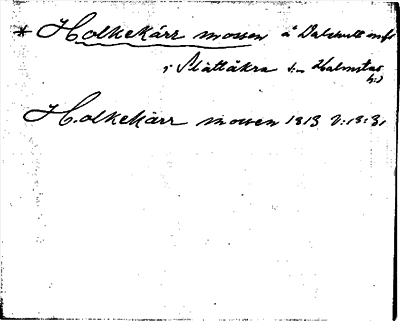 * Holkekärr mossen å Dalshult enl.
i Slättåkra s:n Halmstad
h:d
Holkekärr mossen 1813 2:13:31